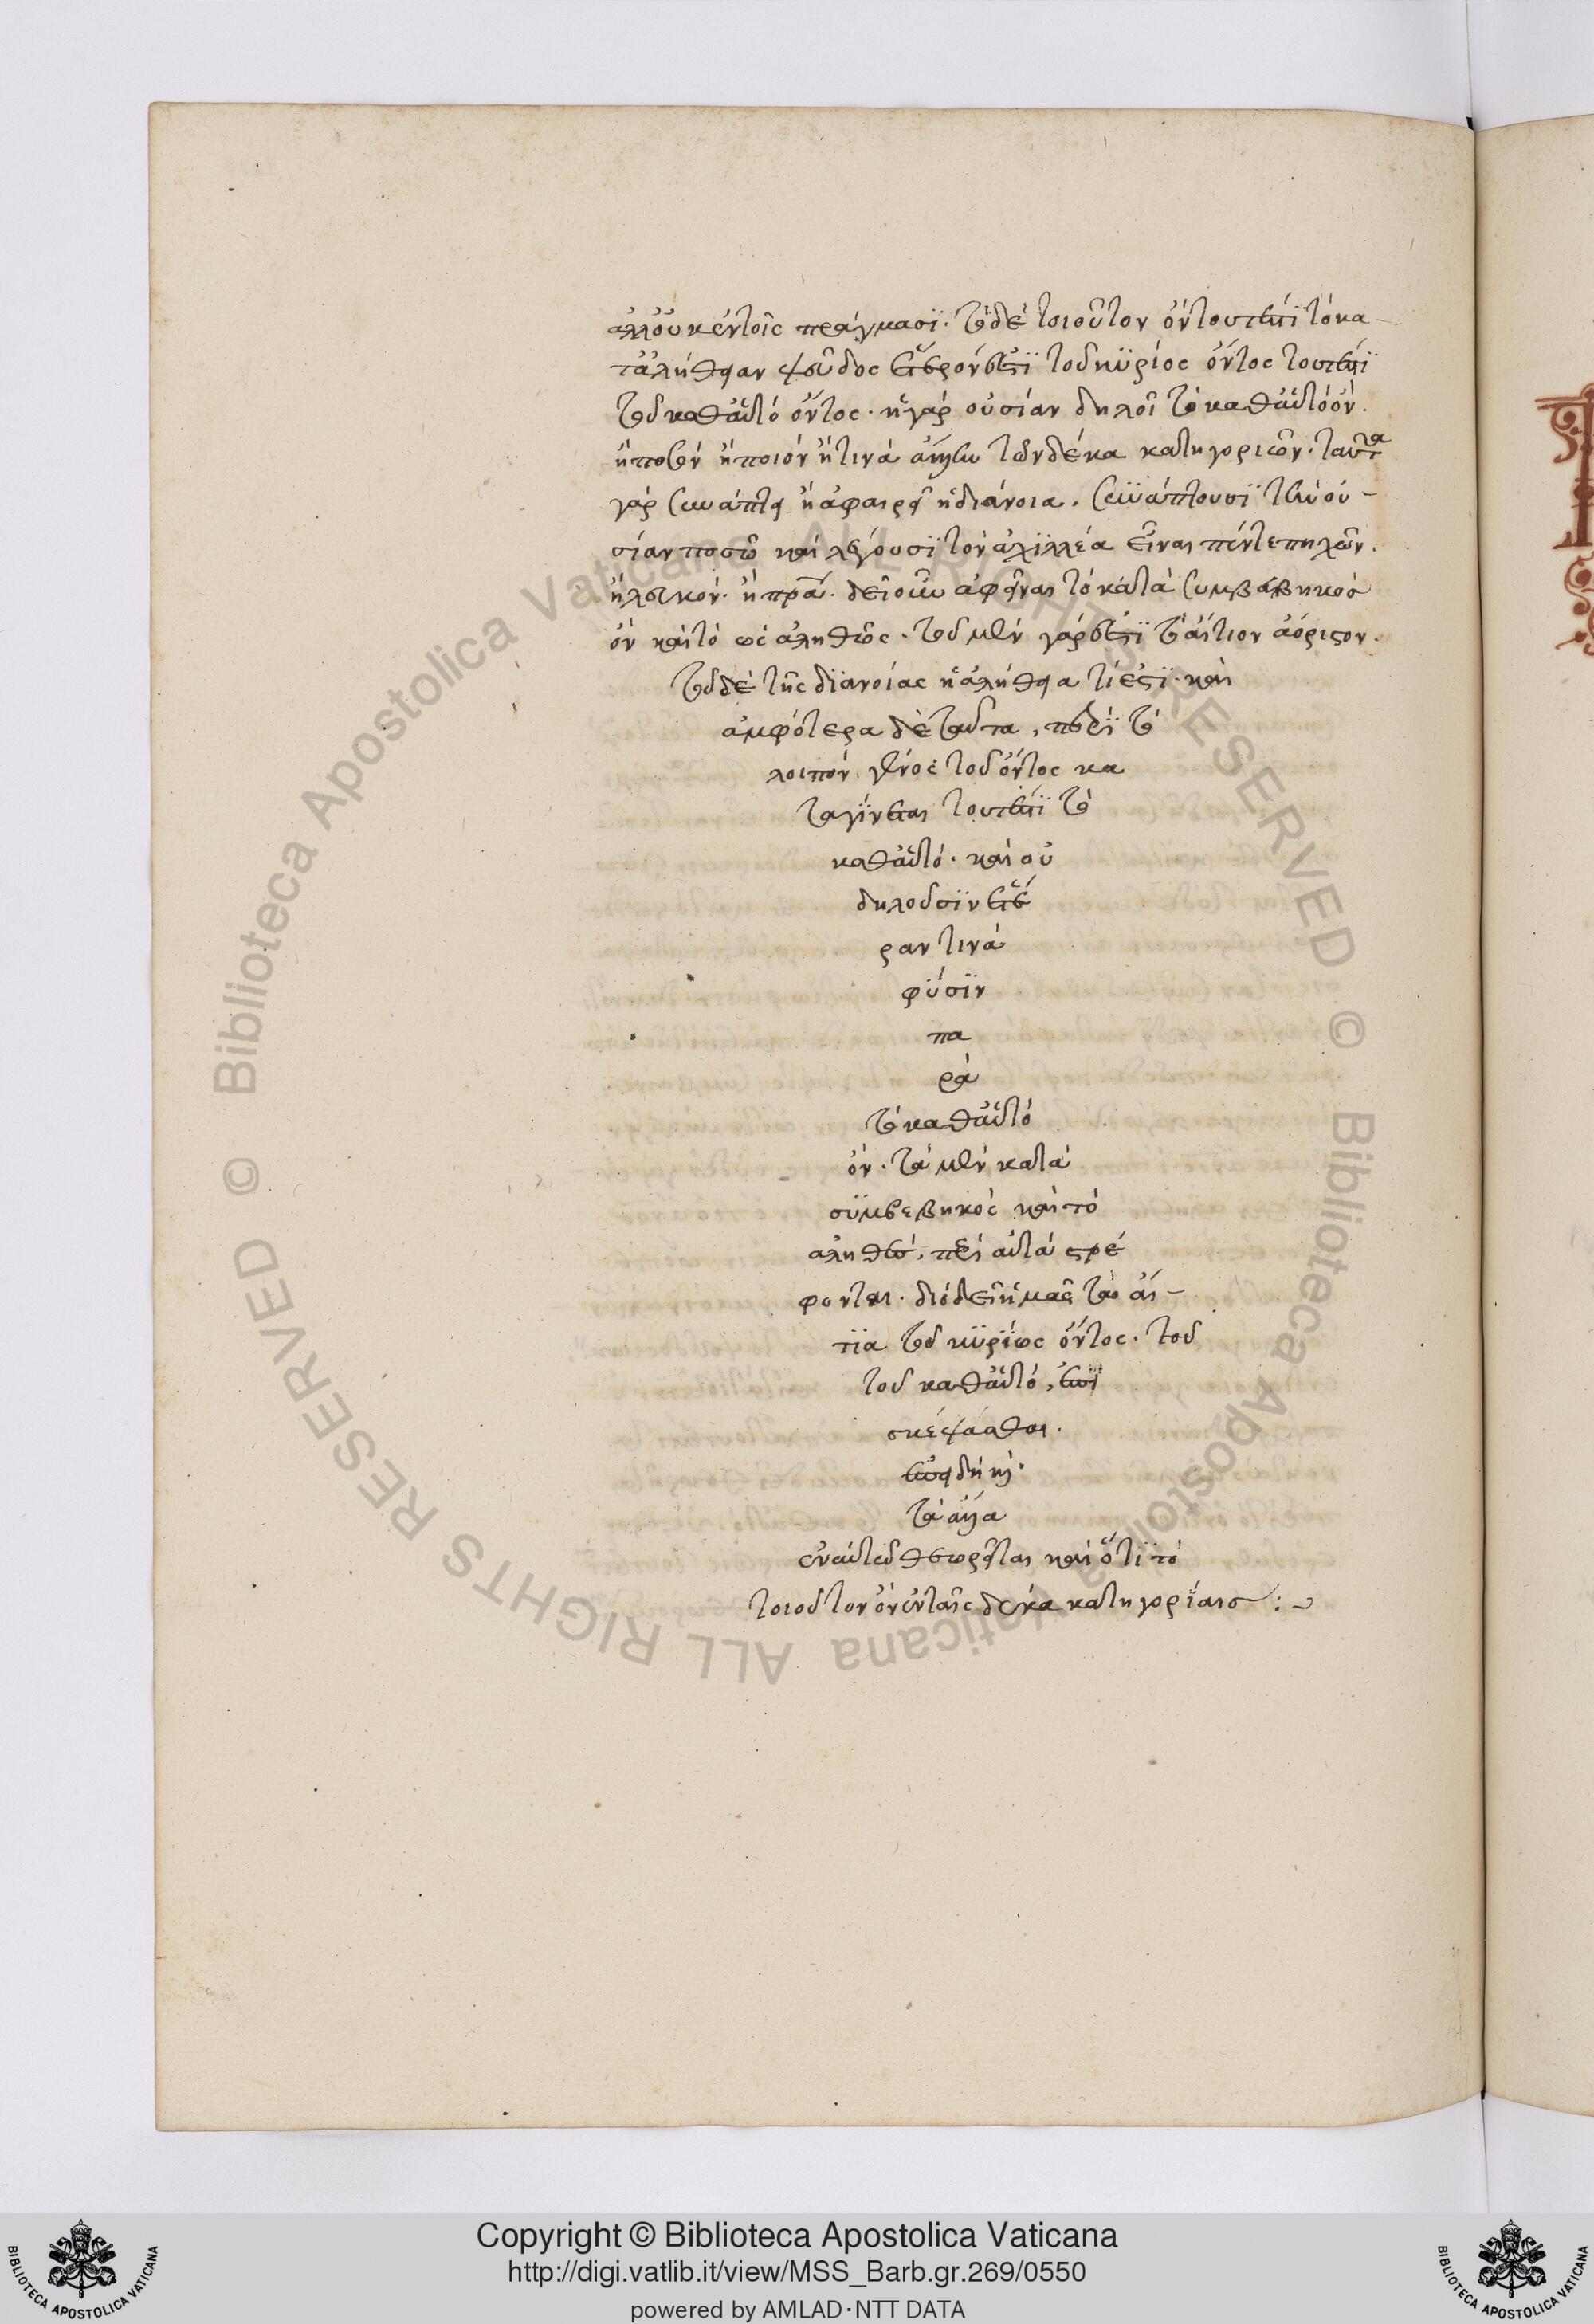 ἀλλ' οὐκ ἐν τοῖς πράγμασϊ. τὸ δὲ τοιοῦτον ὂν τουτέστϊ τὸ κα-
τ' ἀλήθειαν ψεῦδος ἕτερόν ἐστϊ τοῦ κϋρίος ὄντος τουτέστϊ
τοῦ καθ' αὑτό ὄντος. ἢ γὰρ οὐσίαν δηλοῖ τὸ καθ' αὑτὸ ὄν.
ἢ ποσὸν ἢ ποιὸν ἤ τινα ἄλλην τῶν δέκα κατηγοριῶν. ταῦτα
γὰρ συνάπτει ἢ ἀφαιρεῖ ἡ διάνοια. συνάπτουσϊ τὴν οὐ-
σίαν ποσῶ καὶ λέγουσϊ τὸν ἀχϊλλέα εἶναι πέντε πηχῶν.
δεῖ οὖν ἀφεῖναι τὸ κατὰ συμβεβηκὸσ
ὂν καὶ τὸ ὡς ἀληθῶς. τοῦ μὲν γάρ ἐστϊ τὸ αἴτιον ἀόριστον.
τοῦ δὲ τῆς δϊανοίας ἡ ἀλήθεια τί ἐστϊ. καὶ
ἀμφότερα δὲ ταῦτα, περὶ τὸ
λοιπὸν γένος τοῦ ὄντος κα
ταγίνεται τουτέστϊ τὸ
καθ' αὑτό. καὶ οὐ
δηλοῦσϊν ἑτέ
ραν τινὰ
φύσϊν
πα
ρὰ
τὸ καθ' αὑτό
ὄν. τὰ μὲν κατὰ
σϋμβεβηκός καὶ τὸ
ἀληθὲσ, περὶ αὐτὰ στρέ
φονται. διὸ δεῖ ἡμᾶς τὰ αἴ-
τϊα τοῦ κϋρίως ὄντος. τοῦ
τοῦ καθ' αὑτό,
σκέψασθαι.
ἐπεὶ δὴ καὶ
τὰ ἄλλα
ἐν αὐτῶ θεωρεῖται καὶ ὅτϊ τὸ
τοιοῦτον ὂν ἐν ταῖς δέκα κατηγορίαισ :~
© Biblioteca Apostolica Vaticana ALL RIGHTS RESERVED © Biblioteca Apostolica Vaticana ALL RIGHTS RESERVED
Copyright © Biblioteca Apostolica Vaticana
http://digi.vatlib.it/view/MSS_Barb.gr.269/0550
powered by AMLAD·NTT DATA
BIBLIOTECA APOSTOLICA VATICANA
BIBLIOTECA APOSTOLICA VATICANA